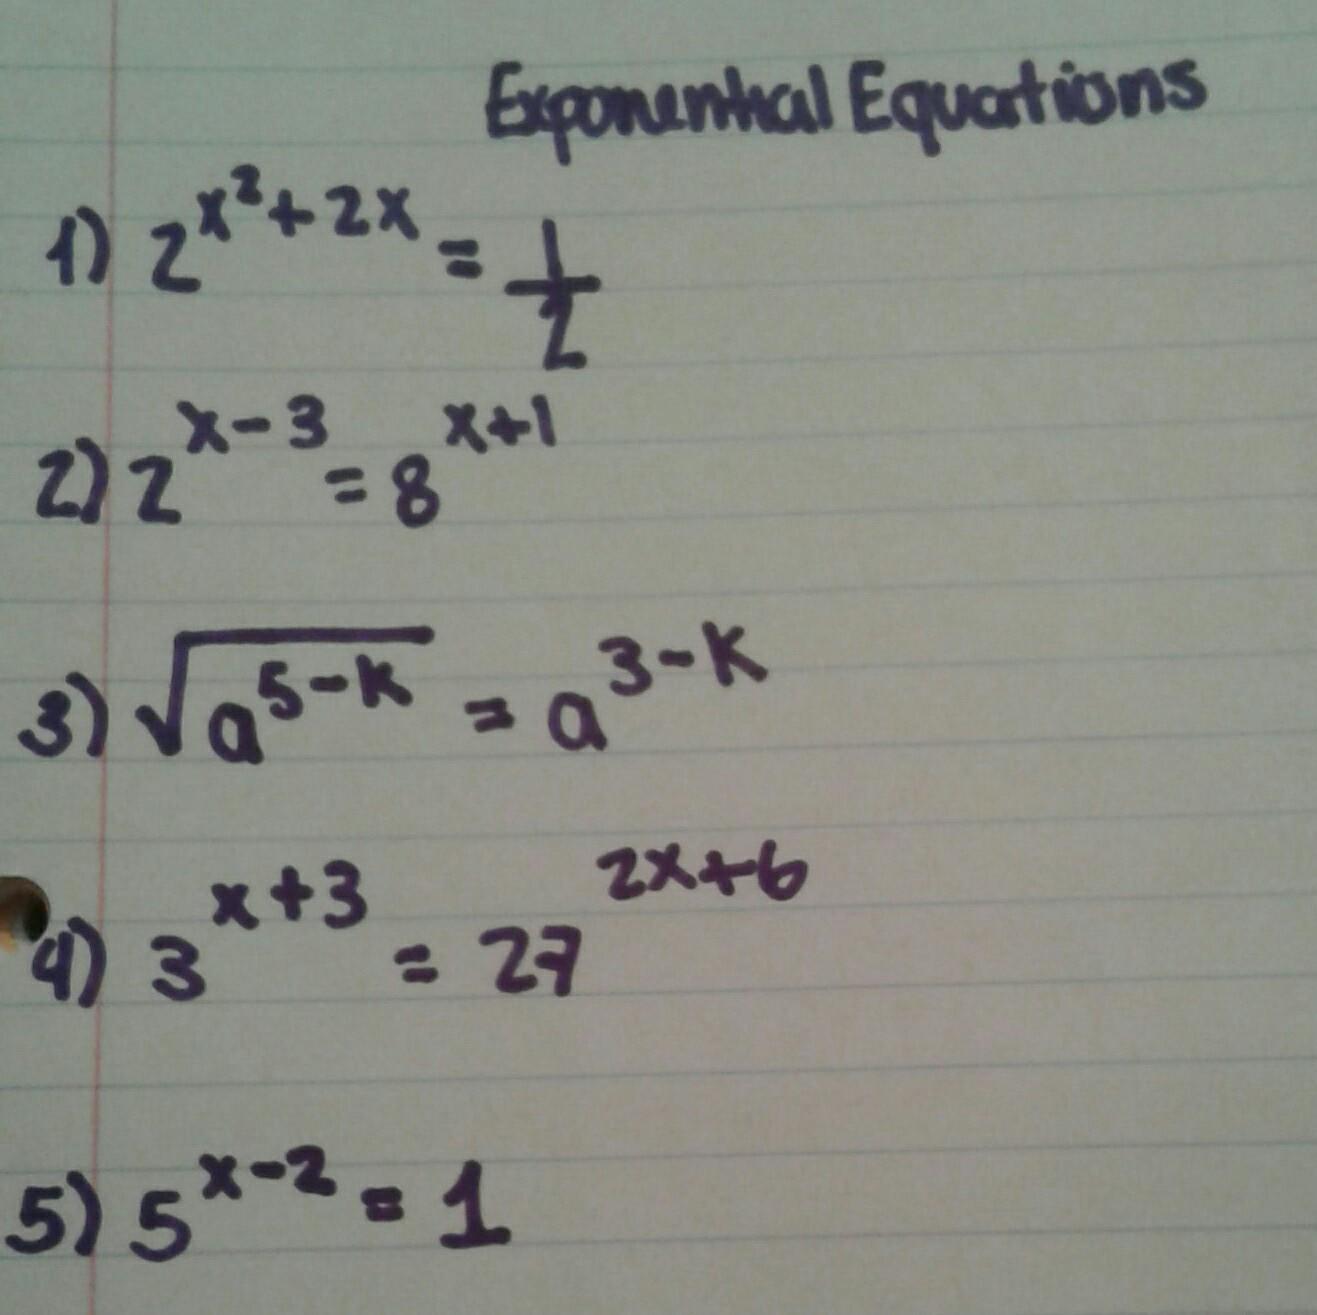 Exponential Equations
1) 2^{x^2+2x} = \frac{1}{2}
2) 2^{x-3} = 8^{x+1}
3) \sqrt{a^{5-k}} = a^{3-k}
4) 3^{x+3} = 27^{2x+6}
5) 5^{x-2} = 1